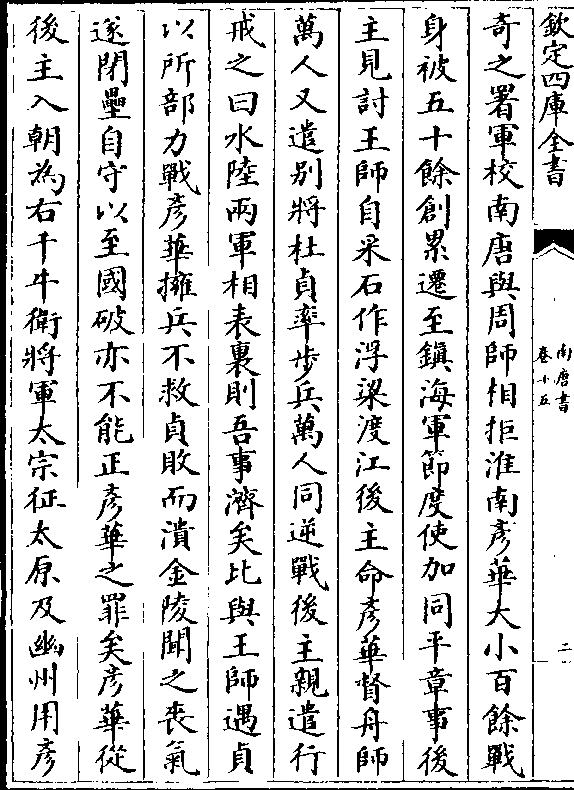 欽定四庫全書
南唐書
卷十五
二
奇之署軍校南唐與周師相拒淮南彥華大小百餘戰
身被五十餘創累遷至鎮海軍節度使加同平章事後
主見討王師自采石作浮梁渡江後主命彥華督舟師
萬人又遣别將杜貞率步兵萬人同逆戰後主親遣行
戒之曰水陸兩軍相表裏則吾事濟矣比與王師遇貞
以所部力戰彥華擁兵不救貞敗而潰金陵聞之喪氣
遂閉壘自守以至國破亦不能正彥華之罪矣彥華從
後主入朝為右千牛衛將軍太宗征太原及幽州用彥